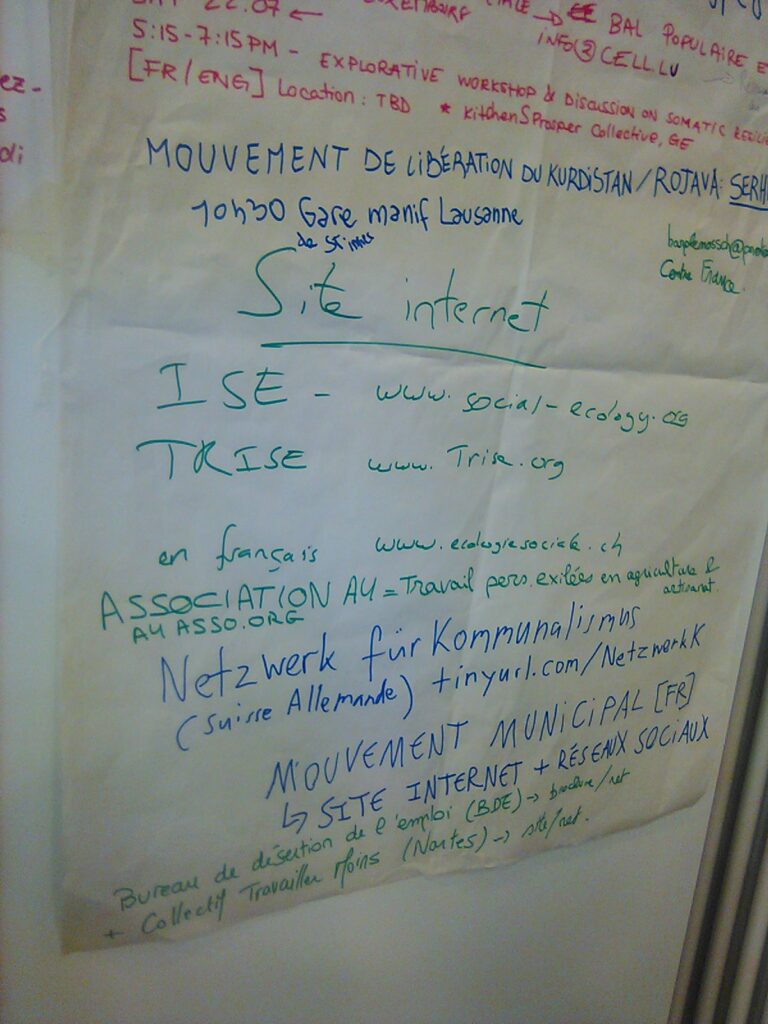 22.07 ←
→ BAL POPULAIRE ET
INFO@CELL.LU
5:15-7:15PM - EXPLORATIVE WORKSHOP & DISCUSSION ON SOMATIC
[FR/ENG] Location: TBD * Kitchen§Prosper Collective, GE
ez-
s
di
MOUVEMENT DE LIBÉRATION DU KURDISTAN/ROJAVA: SERH
10h30 Gare manif Lausanne
Centre France.
Site internet
ISE - www.social-ecology.org
TRISE www.Trise.org
en français www.ecologiesociale.ch
ASSOCIATION A4 = Travail pers. exilées en agriculture & artisanat.
A4 ASSO.ORG
Netzwerk für Kommunalismus
(Suisse Allemande) tinyurl.com/NetzwerkK
MOUVEMENT MUNICIPAL [FR]
↳ SITE INTERNET + RÉSEAUX SOCIAUX
Bureau de désertion de l'emploi (BDE) → brochure/net
+ Collectif Travailler Moins (Nantes) → site/net.